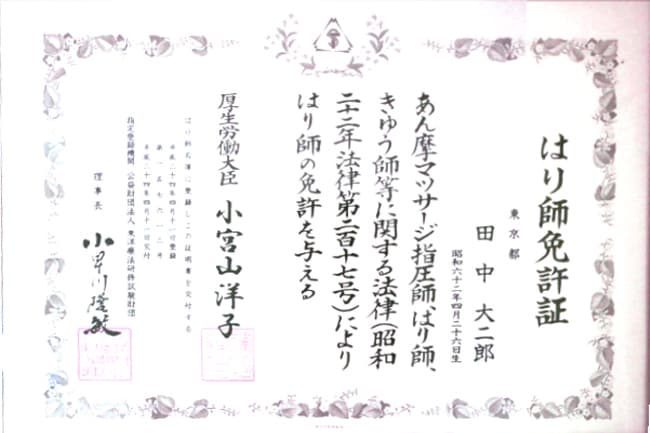 はり師免許証
東京都
田中大二郎
昭和六十二年四月二十六日生
あん摩マッサージ指圧師、はり師、
きゅう師等に関する法律(昭和
二十二年法律第二百十七号)により
はり師の免許を与える
厚生労働大臣 小宮山洋子
はり師名簿に登録しこの証明書を交付する
平成二十四年四月十一日登録
平成二十四年四月十一日交付
指定登録機関 公益財団法人 東洋療法研修試験財団
理事長 小早川隆敏